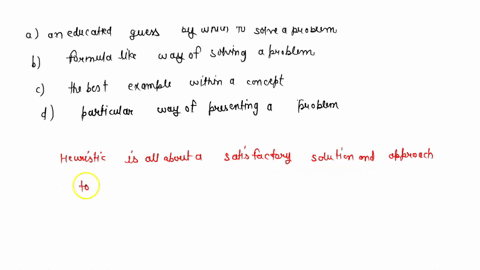 a) an educated guess by which to solve a problem
b) formula like way of solving a problem
c) the best example within a concept
d) particular way of presenting a problem
Heuristic is all about a satisfactory solution and approach
to